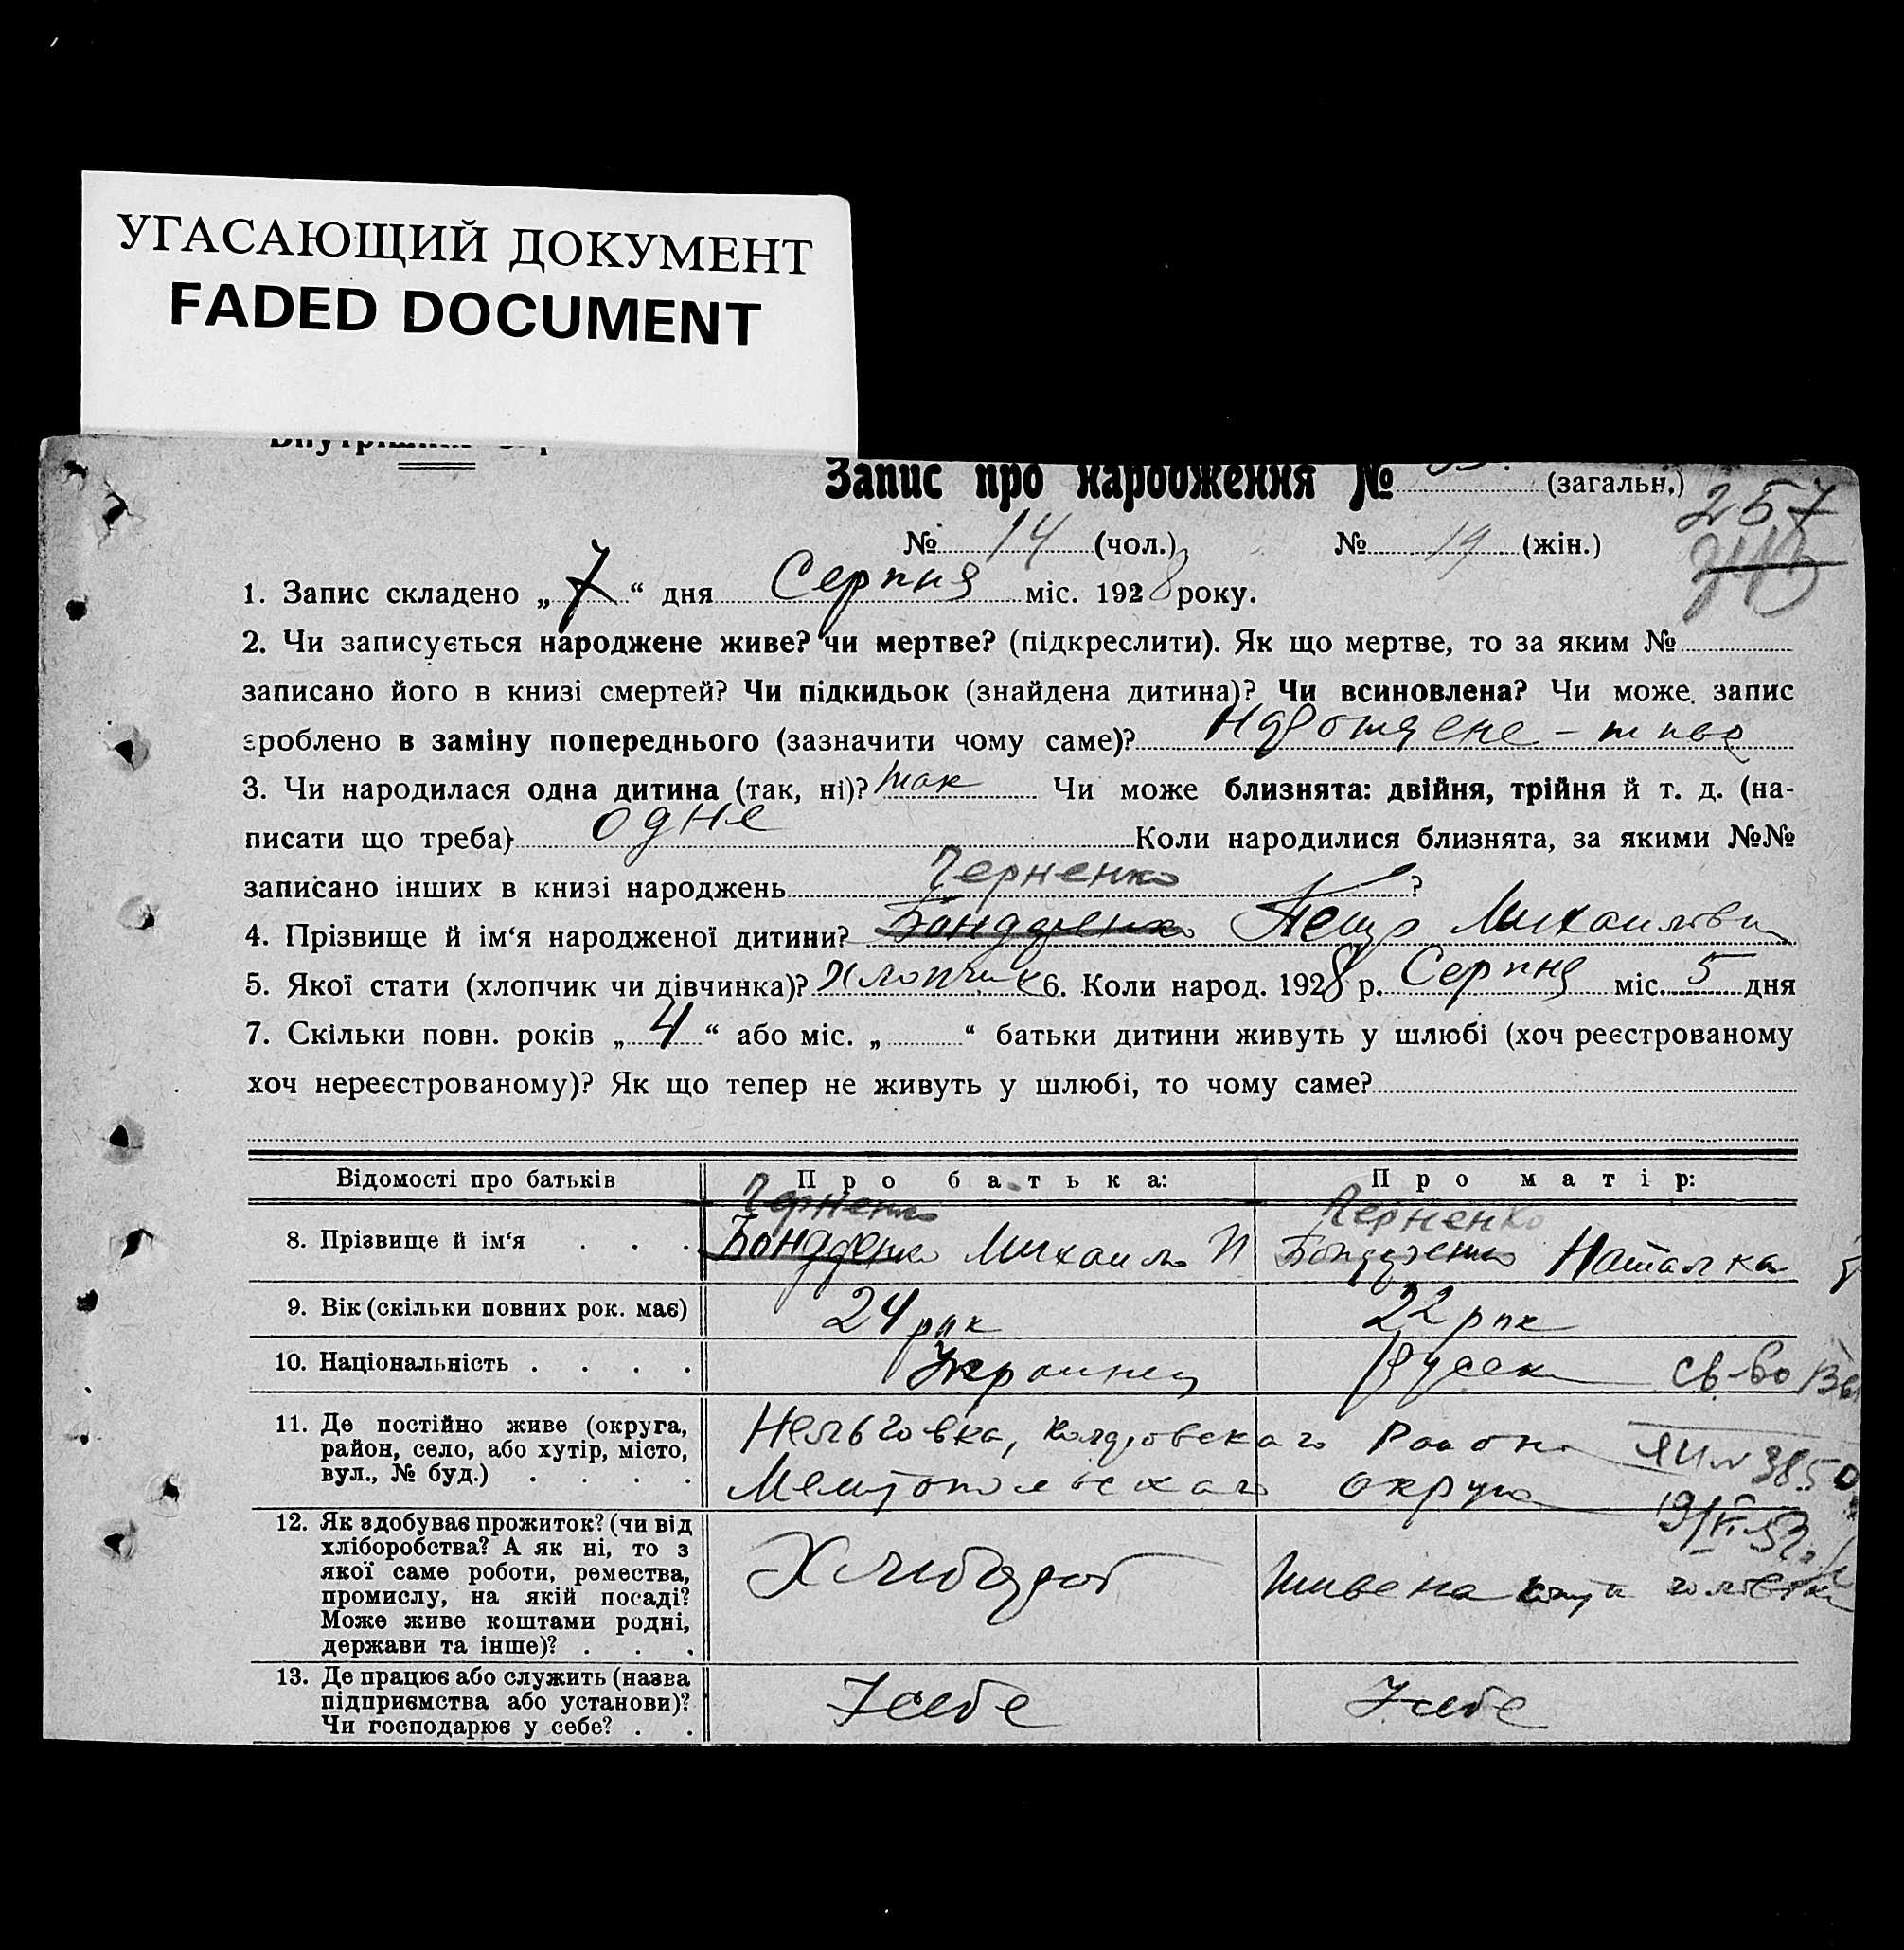 УГАСАЮЩИЙ ДОКУМЕНТ
FADED DOCUMENT
Запис про народження № (загальн.)
257
№ 14 (чол.) № 14 (жін.)
1. Запис складено „7“ дня Серпня міс. 1928 року.
2. Чи записується народжене живе? чи мертве? (підкреслити). Як що мертве, то за яким №
записано його в книзі смертей? Чи підкидьок (знайдена дитина)? Чи всиновлена? Чи може запис
зроблено в заміну попереднього (зазначити чому саме)?
3. Чи народилася одна дитина (так, ні)? так Чи може близнята: двійня, трійня й т. д. (на-
писати що треба) одне Коли народилися близнята, за якими №№
записано інших в книзі народжень ?
Черненко
4. Прізвище й ім‘я народженої дитини? Бондаренко Петр
5. Якої стати (хлопчик чи дівчинка)? Хлопчик 6. Коли народ. 1928 р. Серпня міс. 5 дня
7. Скільки повн. років „4“ або міс. „ “ батьки дитини живуть у шлюбі (хоч реєстрованому
хоч нереєстрованому)? Як що тепер не живуть у шлюбі, то чому саме?
Відомості про батьків Про батька: Про матір:
Черненко Черненко
8. Прізвище й ім‘я . . . Бондаренко Михаил Бондаренко Наталка
9. Вік (скільки повних рок. має) 24 рок 22 рок
10. Національність . . . . Украинец св-во
11. Де постійно живе (округа,
район, село, або хутір, місто,
вул., № буд.) . . . .
Нельговка, района
округа
12. Як здобуває прожиток? (чи від
хліборобства? А як ні, то з
якої саме роботи, ремества,
промислу, на якій посаді?
Може живе коштами родні,
держави та інше)? . . .
Хлибороб
13. Де працює або служить (назва
підприємства або установи)?
Чи господарює у себе? . .
У себе У себе